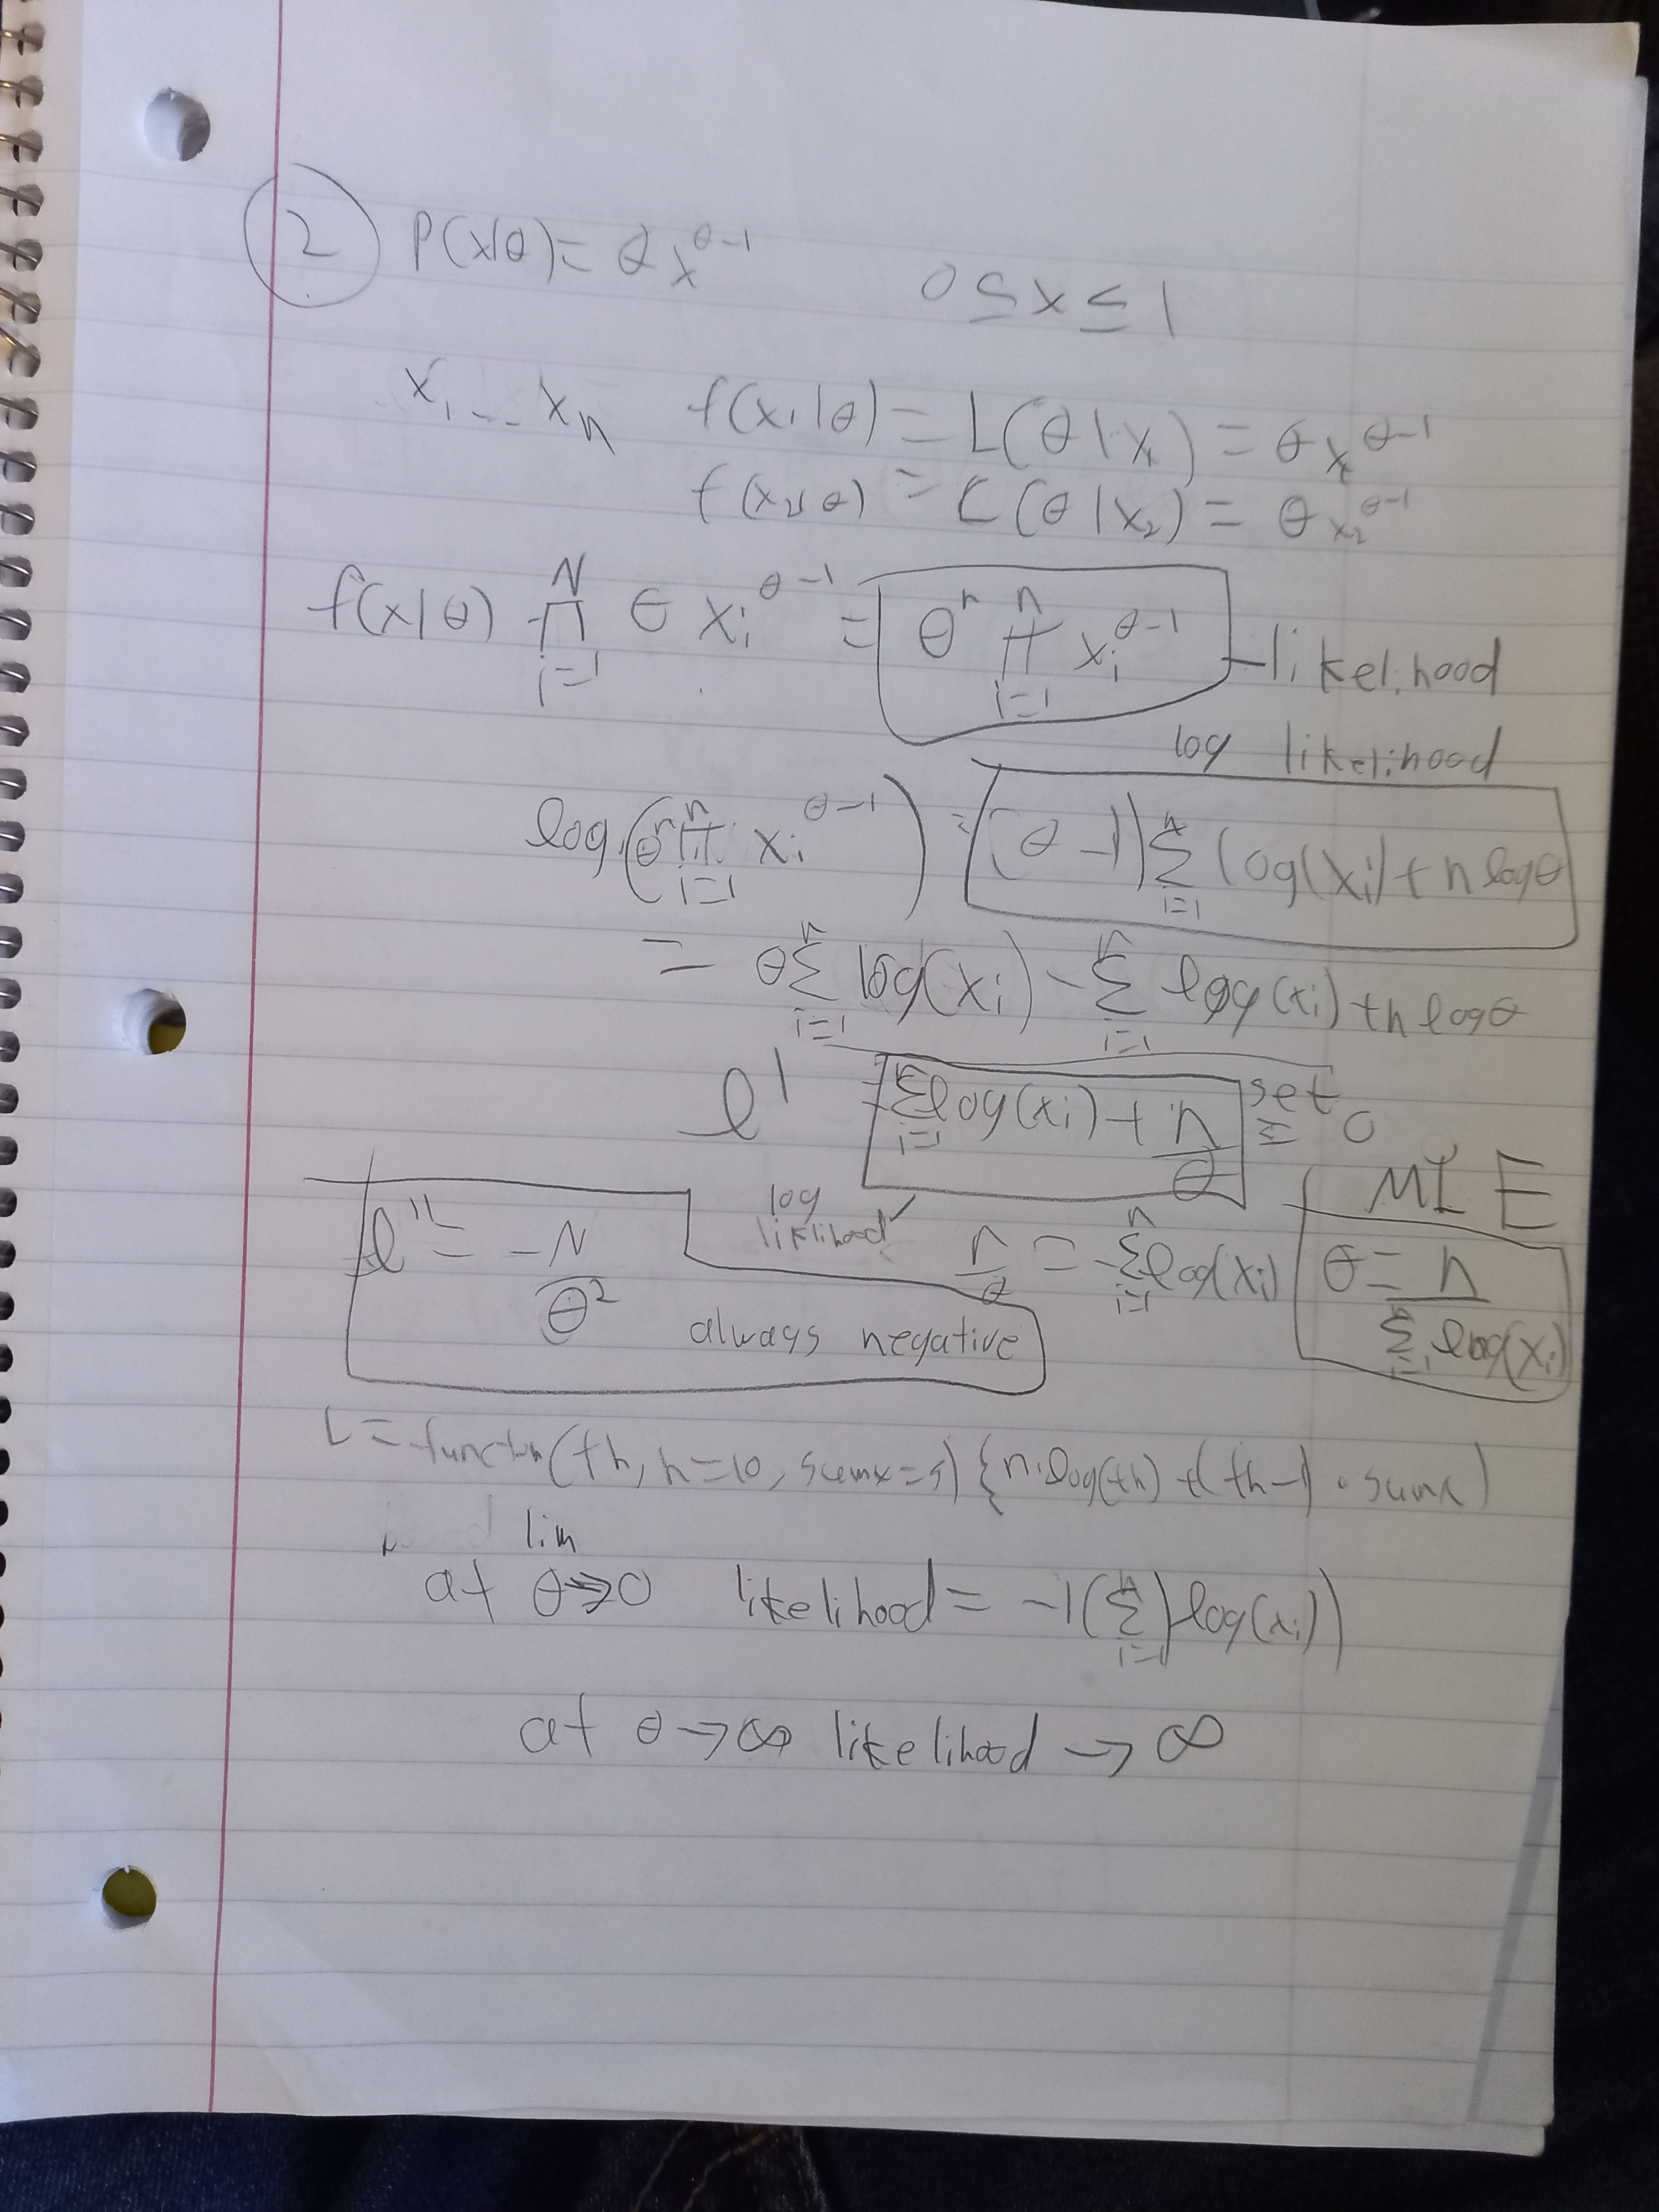 2 P(x|θ) = θ x^θ-1 0 ≤ x ≤ 1
x₁ -- xₙ f(x₁|θ) = L(θ|x₁) = θ x₁^θ-1
f(x₂|θ) = L(θ|x₂) = θ x₂^θ-1
f(x|θ) ∏_{i=1}^{N} θ xᵢ^θ-1 = θ^n ∏_{i=1}^{n} xᵢ^θ-1 - likelihood
log likelihood
log(θ^n ∏_{i=1}^{n} xᵢ^θ-1) = (θ-1) Σ_{i=1}^{n} log(xᵢ) + n log θ
= θ Σ_{i=1}^{n} log(xᵢ) - Σ_{i=1}^{n} log(xᵢ) + n log θ
l' = Σ_{i=1}^{n} log(xᵢ) + n/θ set = 0
MLE
l'' = -N/θ² always negative
log liklihood
n/θ = -Σ_{i=1}^{n} log(xᵢ) θ = n / Σ_{i=1}^{n} log(xᵢ)
L = function(th, n=10, sumx=5) {n·log(th) + (th-1) · sumx)
lim
at θ→0 likelihood = -1(Σ_{i=1}^{n} log(xᵢ))
at θ→∞ likelihood → ∞